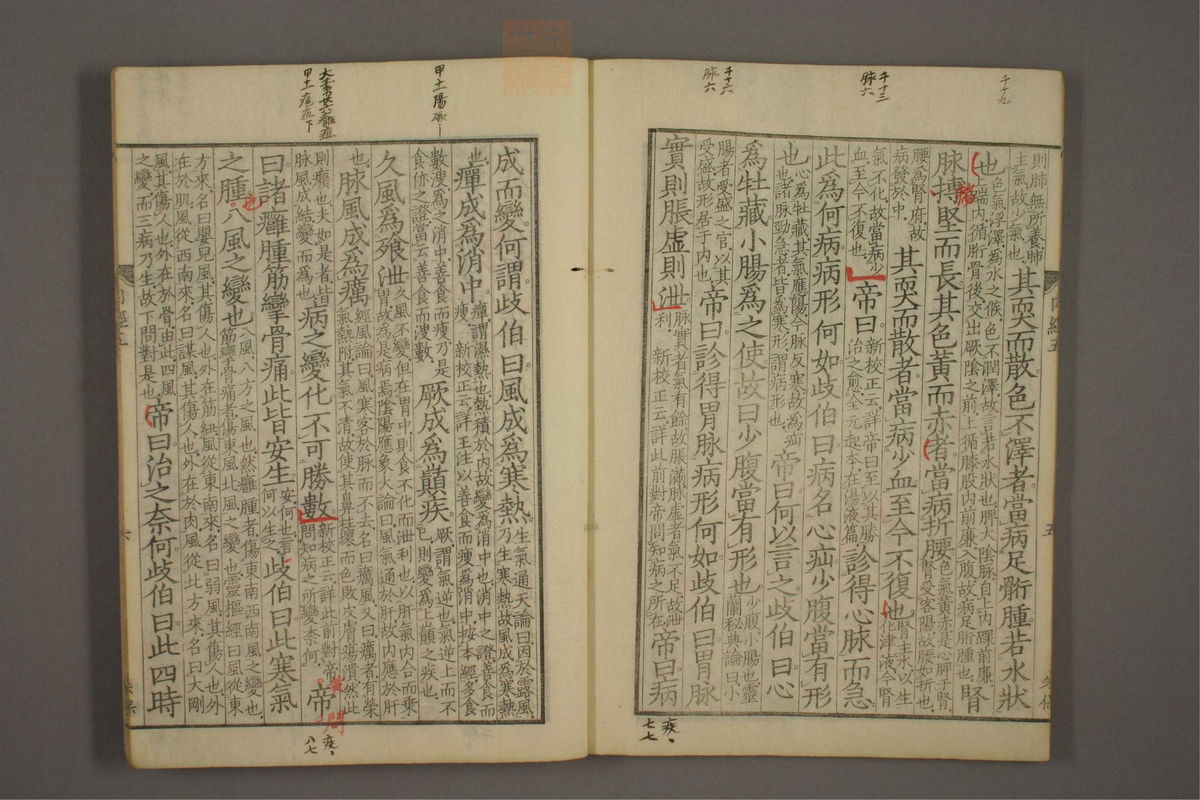 千十九
千十三
脉六
千十六
脉六
則肺無所養肺
主氣故少氣也
其耎而散色不澤者當病足䯒腫若水狀
也
色氣浮澤為水之候色不潤澤故言若水狀也脾太陰脉自上內踝前廉
端內循䯒骨後交出厥陰之前上循膝股內前廉入腹故病足䯒腫也
腎
脉搏堅而長其色黃而赤者當病折腰
色氣黃赤是心脾干腎
腎受客陽故腰如折也
腰為腎府故
病發於中
其耎而散者當病少血至今不復也
腎主水以生
化津液今腎
氣不化故當病少
血至今不復也
帝曰
新校正云詳帝曰至以其勝
治之愈全元起本在湯液篇
診得心脉而急
此為何病病形何如歧伯曰病名心疝少腹當有形
也
心為牡藏其氣應陽今脉反寒故為疝
也諸脉勁急者皆為寒形謂病形也
帝曰何以言之歧伯曰心
為牡藏小腸為之使故曰少腹當有形也
少腹小腸也靈
蘭秘典論曰小
腸者受盛之官以其
受盛故形居于內也
帝曰診得胃脉病形何如歧伯曰胃脉
實則脹虛則泄
脉實者氣有餘故脹滿脉虛者氣不足故泄
利 新校正云詳此前對帝問知病之所在
帝曰病
疾、
七七
甲十陽
成而變何謂歧伯曰風成為寒熱
生氣通天論曰因於露風
乃生寒熱故風成為寒熱
也
癉成為消中
癉謂濕熱也熱積於內故變為消中也消中之證善食而
瘦 新校正云詳王注以善食而瘦為消中按本經多食
數溲為之消中善食而瘦乃是
食㑊之證當云善食而溲數
厥成為巔疾
厥謂氣逆也氣逆上而不
已則變為上巔之疾也
久風為飱泄
久風不變但在胃中則食不化而泄利也以肝氣內合而乘
胃故為是病焉陰陽應象大論曰風氣通於肝故內應於肝
也
脉風成為癘
經風論曰風寒客於脉而不去名曰癘風又曰癘者有榮
氣熱胕其氣不清故使其鼻柱壞而色敗皮膚瘍潰然此
則癩也夫如是者皆
脉風成結變而為也
病之變化不可勝數
新校正云詳此前對帝
問知病之所變奈何
帝
曰諸癰腫筋攣骨痛此皆安生
安何也言
何以生之
歧伯曰此寒氣
之腫八風之變也
八風八方之風也然癰腫者傷東南西南風之變也
筋攣骨痛者傷東風北風之變也靈樞經曰風從東
方來名曰嬰兒風其傷人也外在筋紐風從東南來名曰弱風其傷人也外
在於肌風從西南來名曰謀風其傷人也外在於肉風從北方來名曰大剛
風其傷人也外在於骨由此四風
之變而三病乃生故下問對是也
帝曰治之奈何歧伯曰此四時
疾、
八七